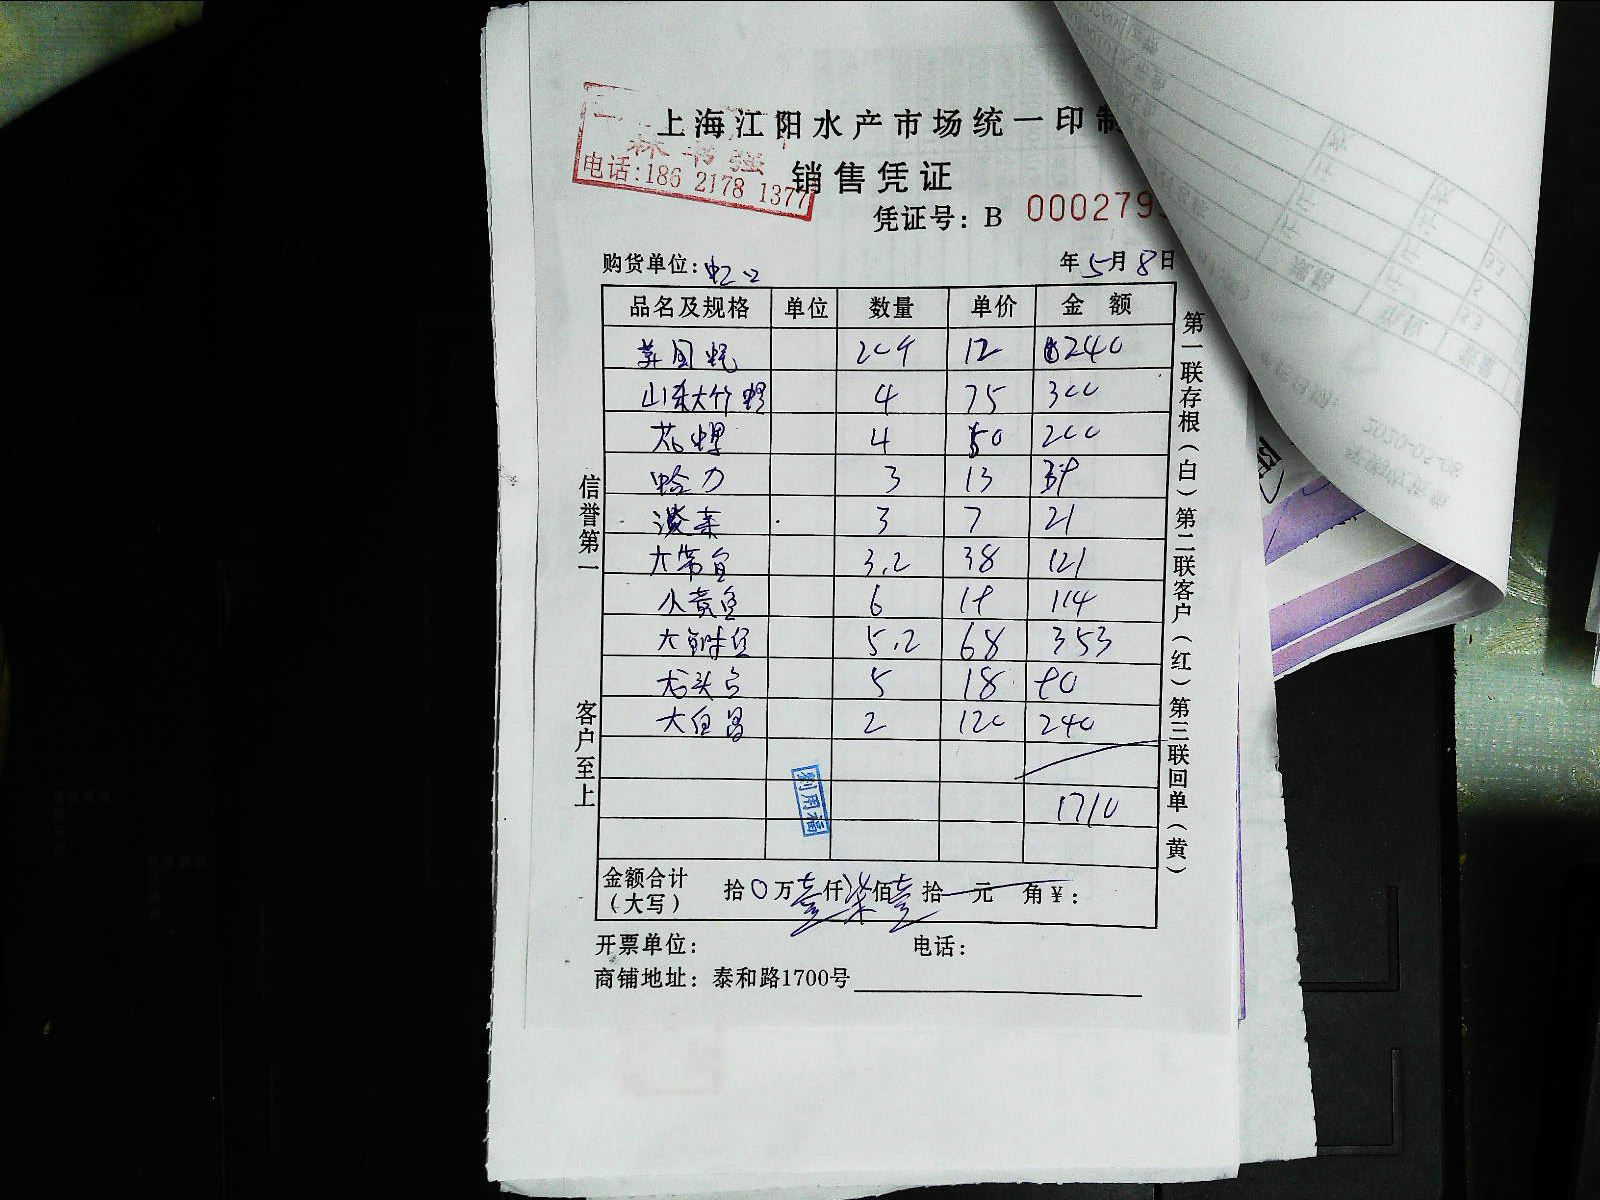 上海江阳水产市场统一印制
林书强
电话:186 2178 1377
销售凭证
凭证号: B 0002793
购货单位: 虹口 年5月8日
品名及规格 单位 数量 单价 金额
12 240
山东大竹蛏 4 75 300
花螺 4 50 200
蛤力 3 13 39
淡菜 3 7 21
大带鱼 3.2 38 121
小黄鱼 6 19 114
5.2 68 353
龙头鱼 5 18 90
大白昌 2 120 240
1710
金额合计 拾0万壹仟柒佰壹拾 元 角¥:
(大写)
开票单位: 电话:
商铺地址: 泰和路1700号
信誉第一
客户至上
第一联存根(白)第二联客户(红)第三联回单(黄)